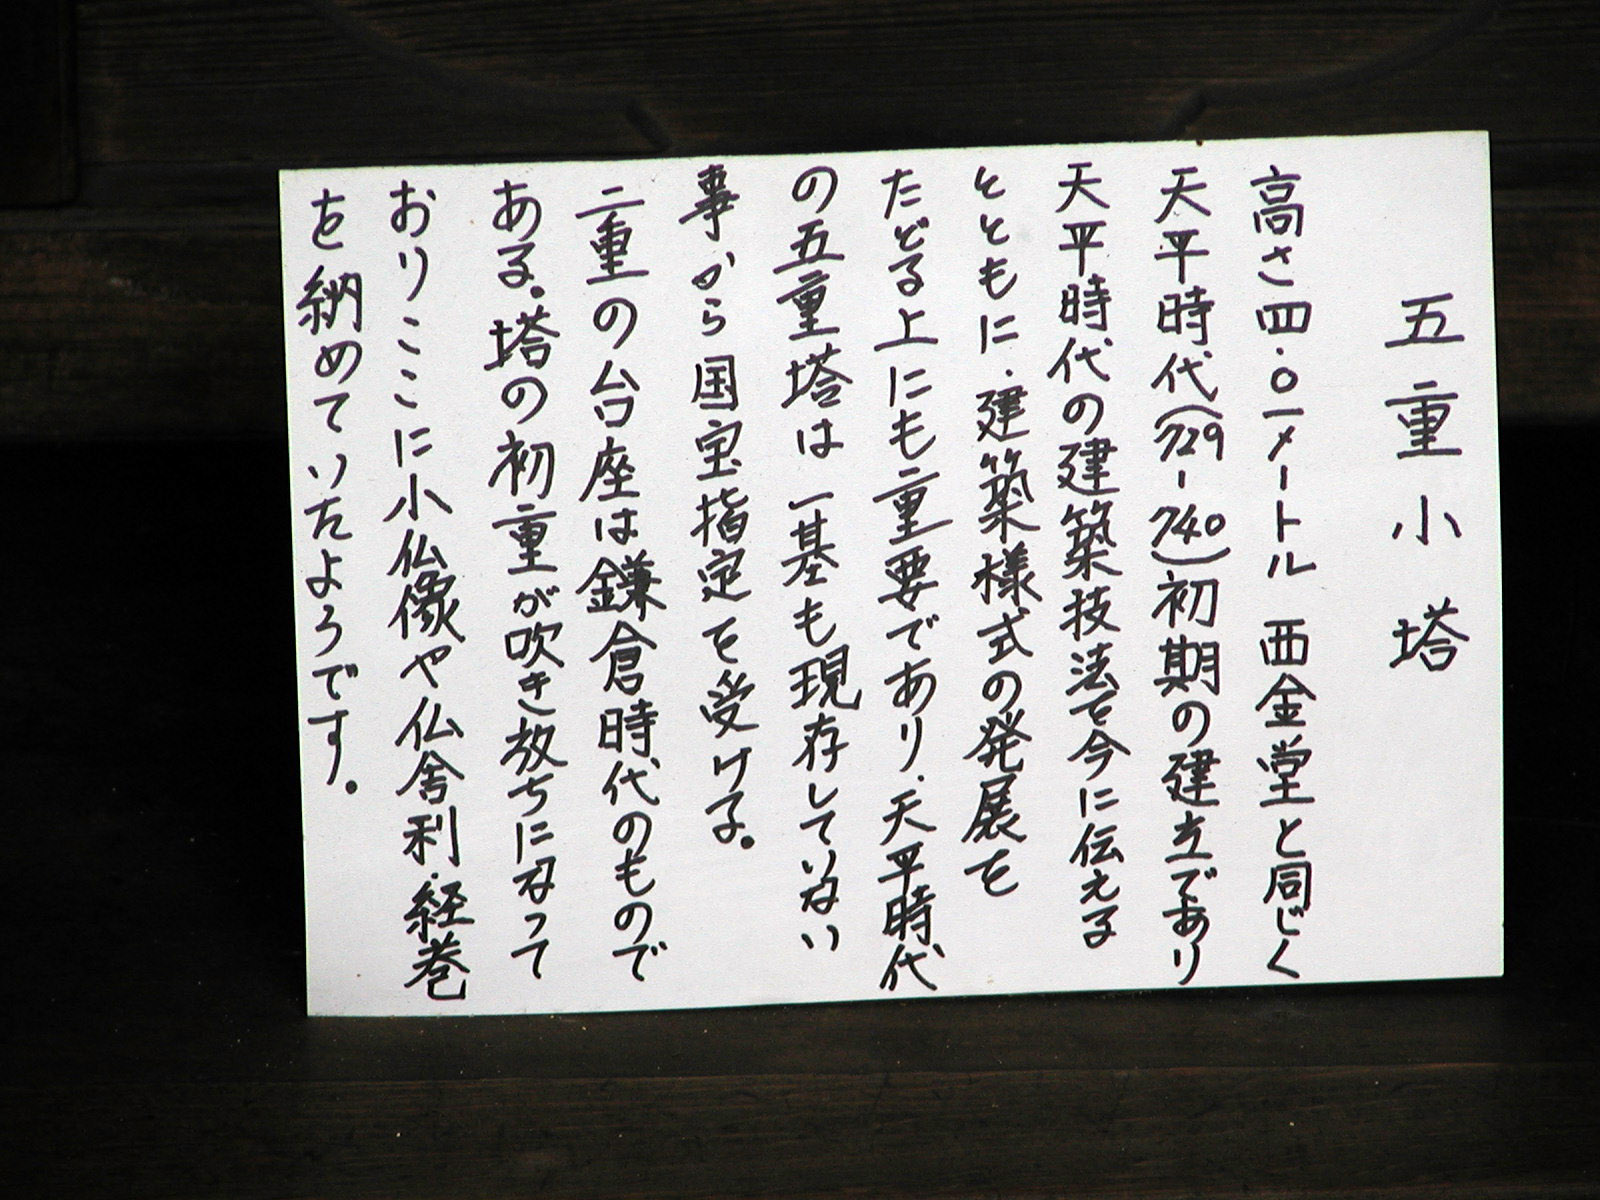 五重小塔
高さ四.〇一メートル 西金堂と同じく
天平時代(729-740)初期の建立であり
天平時代の建築技法を今に伝える
とともに.建築様式の発展を
たどる上にも重要であり.天平時代
の五重塔は一基も現存していない
事から国宝指定を受ける。
二重の台座は鎌倉時代のもので
ある。塔の初重が吹き放ちになって
おりここに小仏像や仏舎利.経巻
を納めていたようです。